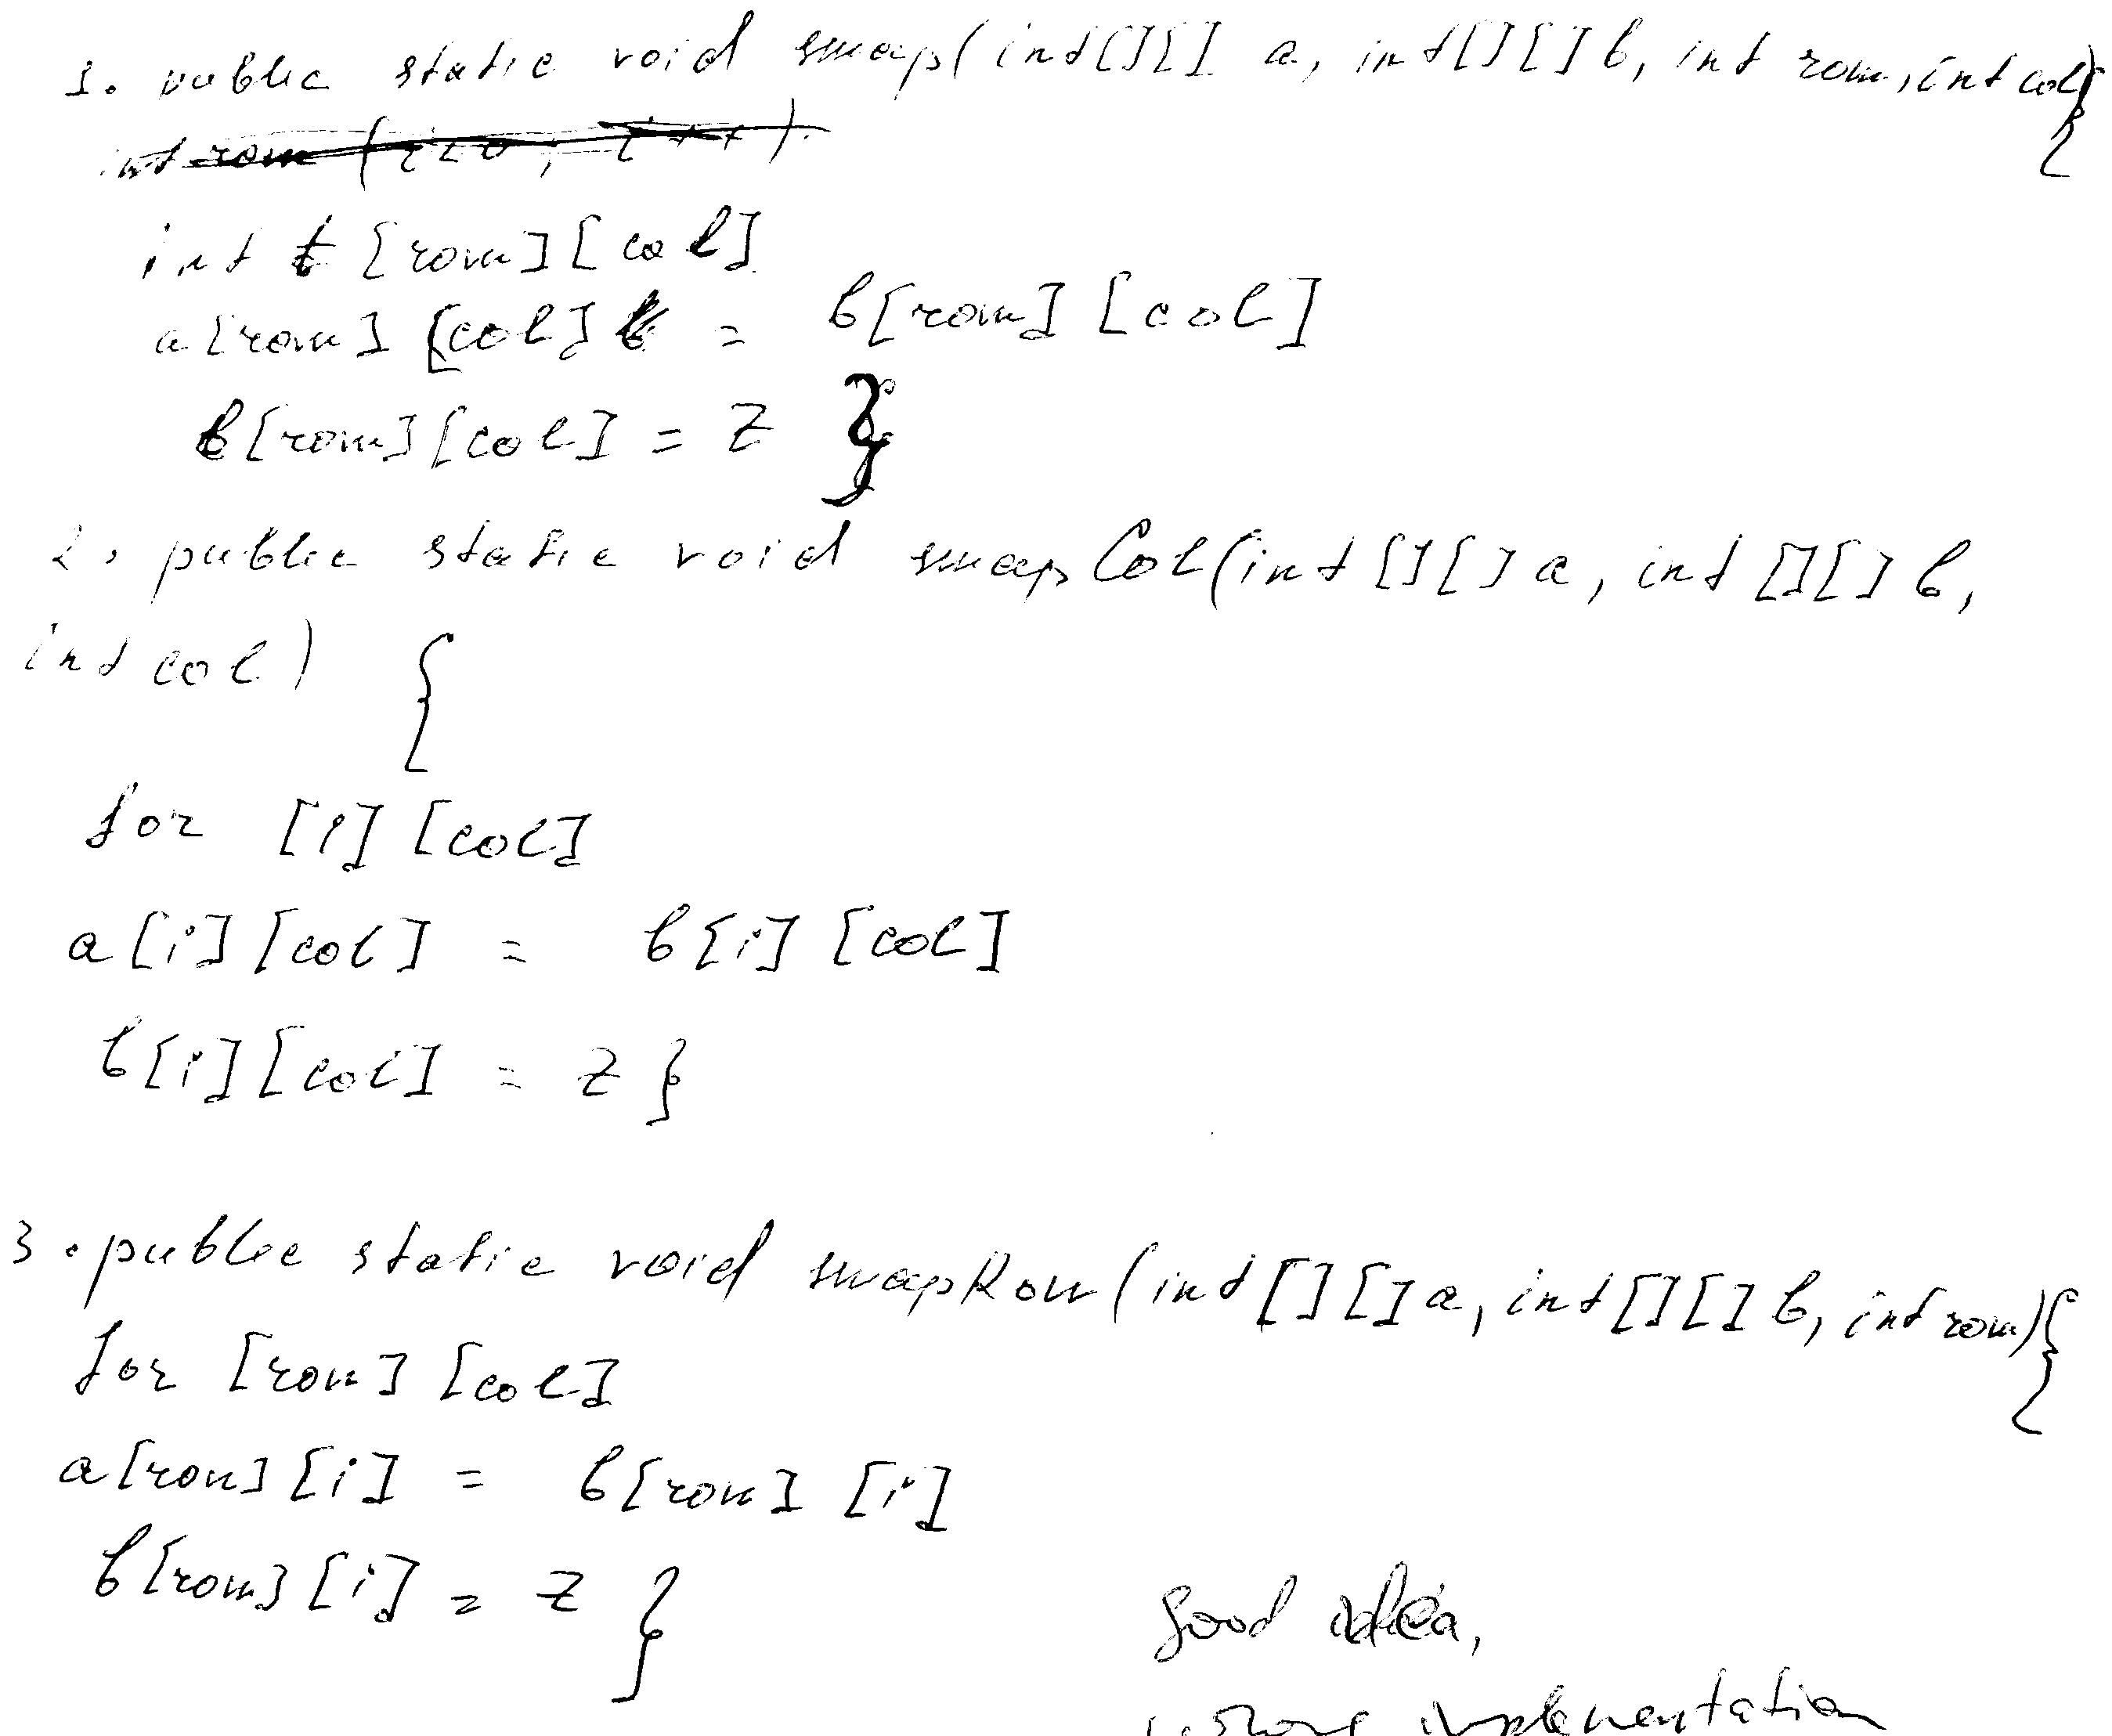 1. public static void swap(int[][] a, int[][] b, int row, int col){
int row (i<0; i++)
int t [row][col]
a[row] [col] = b[row] [col]
b[row][col] = z }
2. public static void swapCol(int[][] a, int [][] b,
int col) {
for [i] [col]
a[i][col] = b[i] [col]
b[i][col] = z }
3. public static void swapRow(int[][] a, int[][] b, int row){
for [row] [col]
a[row][i] = b[row] [i]
b[row][i] = z }
good idea,
wrong implementation